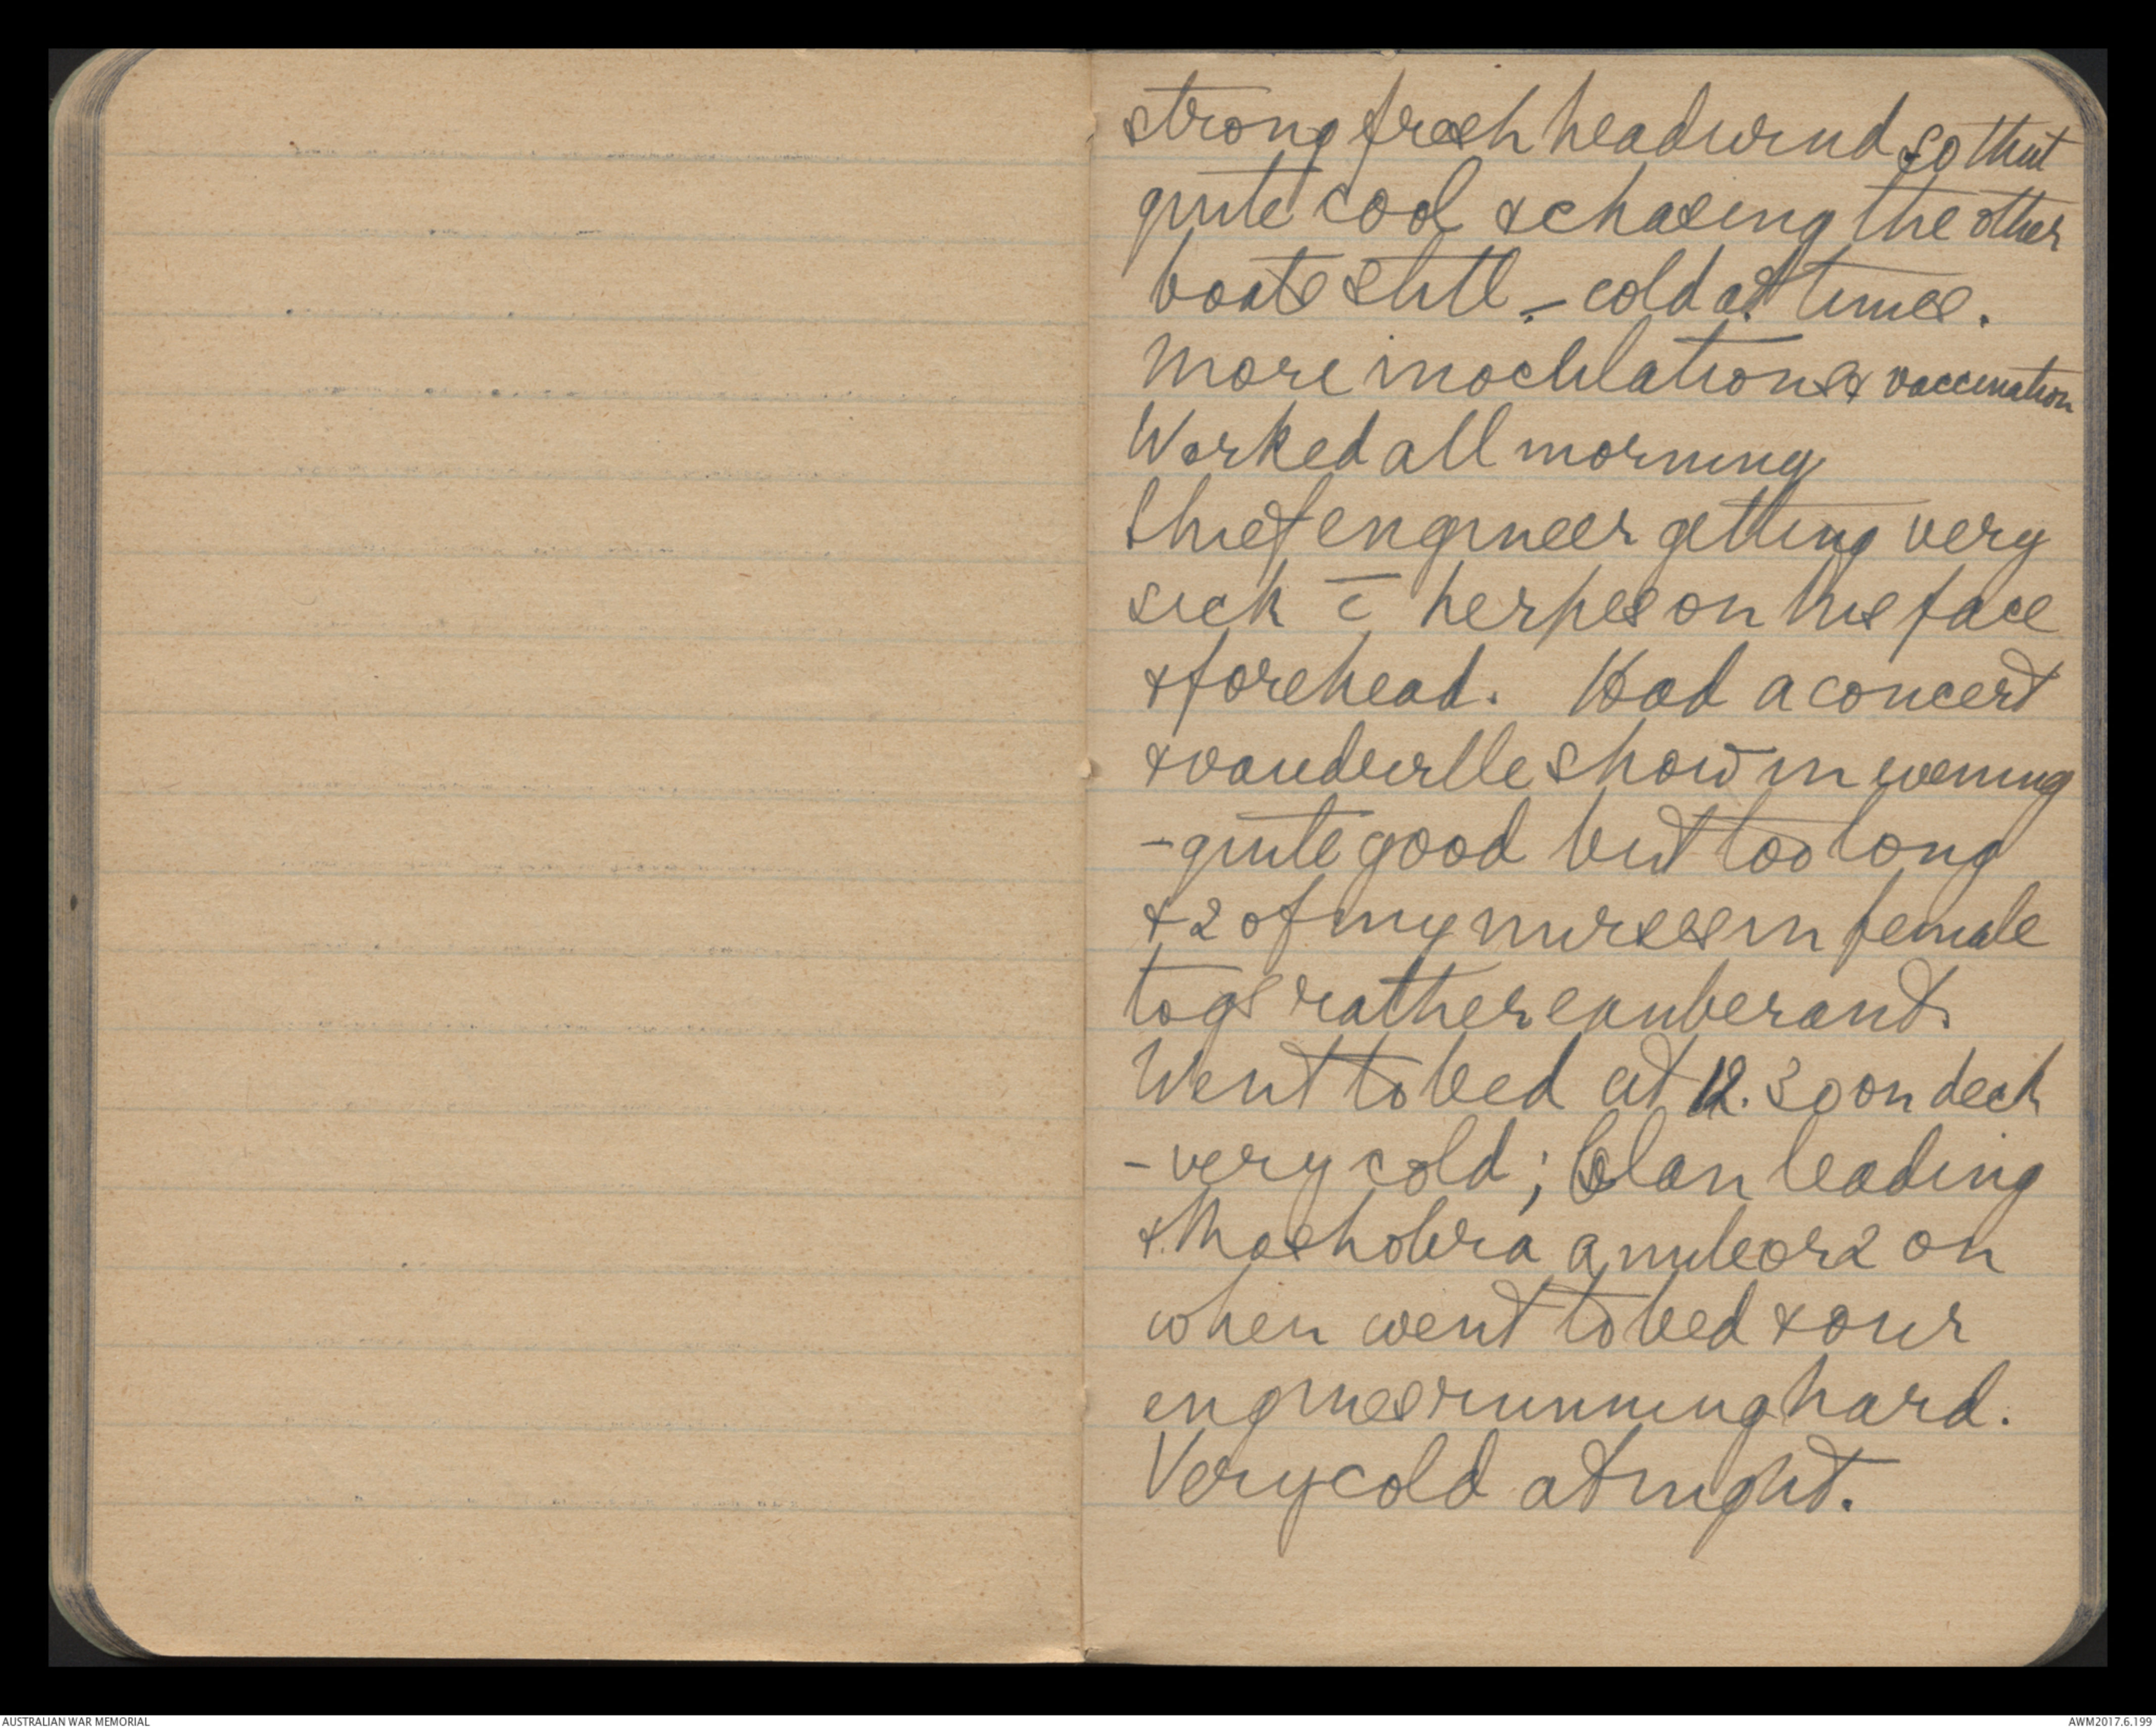 strong fresh headwind so that
quite cool & chasing the other
boats still - cold at times.
More inoculations & vaccination
Worked all morning
Chief engineer getting very
sick c̄ herpes on his face
& forehead. Had a concert
& vaudeville show in evening
- quite good but too long
& 2 of my nurses in female
togs rather exuberant.
Went to bed at 12.30 on deck
- very cold; Clan leading
& Mashobra a mile or 2 on
when went to bed & our
engines running hard.
Very cold at night.
AUSTRALIAN WAR MEMORIAL
AWM2017.6.199